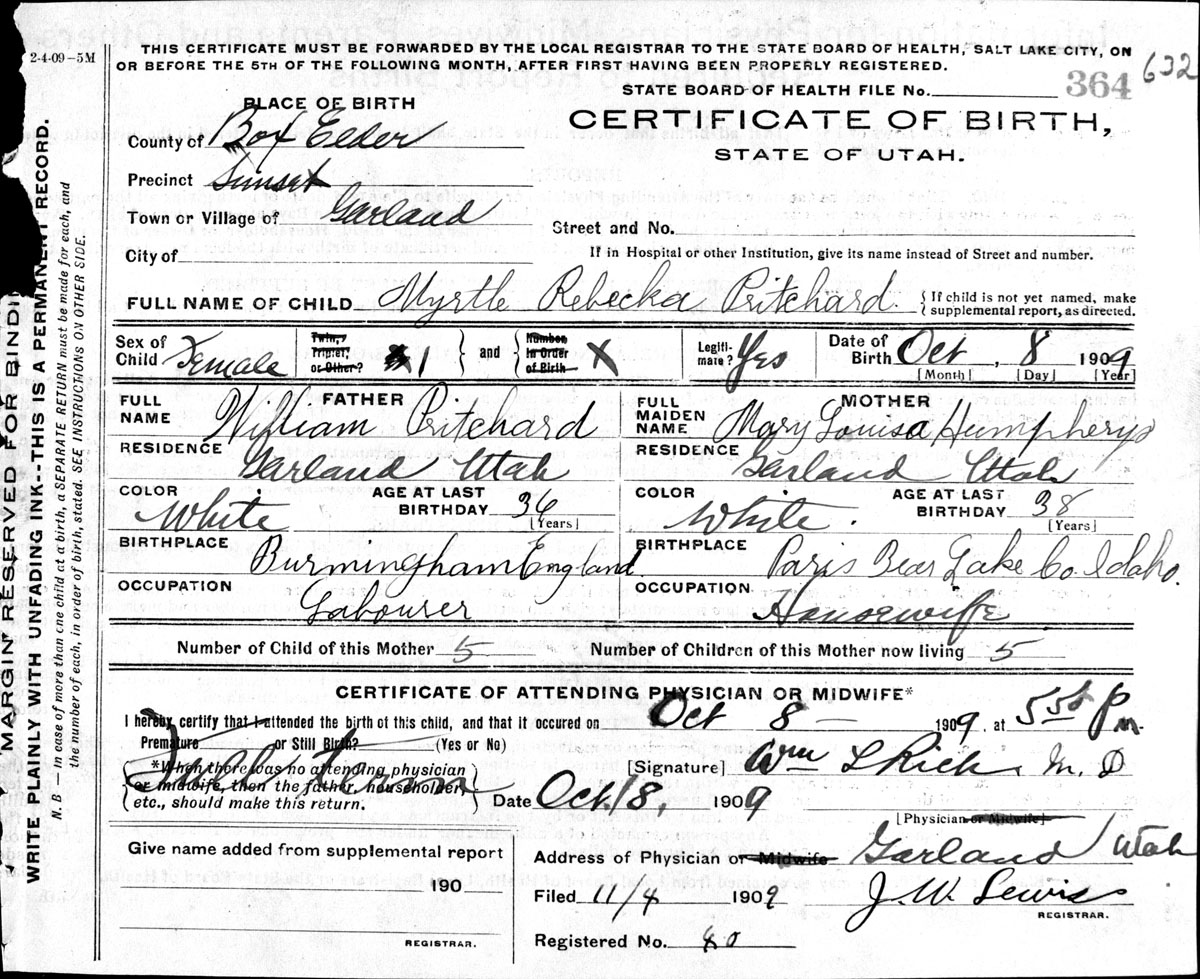 2-4-09-5M
THIS CERTIFICATE MUST BE FORWARDED BY THE LOCAL REGISTRAR TO THE STATE BOARD OF HEALTH, SALT LAKE CITY, ON
OR BEFORE THE 5TH OF THE FOLLOWING MONTH, AFTER FIRST HAVING BEEN PROPERLY REGISTERED.
632
STATE BOARD OF HEALTH FILE No. 364
PLACE OF BIRTH
CERTIFICATE OF BIRTH,
STATE OF UTAH.
County of Box Elder
Precinct Sunset
Town or Village of Garland
Street and No.
City of
If in Hospital or other Institution, give its name instead of Street and number.
FULL NAME OF CHILD Myrtle Rebecka Pritchard
{If child is not yet named, make
supplemental report, as directed.
Sex of Child Female
Twin, Triplet, or Other? 1 } and { Number in Order of Birth X
Legiti-mate? Yes
Date of Birth Oct, 8 1909
[Month] [Day] [Year]
FATHER
FULL NAME William Pritchard
RESIDENCE Garland Utah
COLOR White
AGE AT LAST BIRTHDAY 36
[Years]
BIRTHPLACE Burmingham England
OCCUPATION Labourer
MOTHER
FULL MAIDEN NAME Mary Louisa Humpherys
RESIDENCE Garland Utah
COLOR White.
AGE AT LAST BIRTHDAY 38
[Years]
BIRTHPLACE Paris Bear Lake Co. Idaho.
OCCUPATION Housewife
Number of Child of this Mother 5
Number of Children of this Mother now living 5
CERTIFICATE OF ATTENDING PHYSICIAN OR MIDWIFE*
I hereby certify that I attended the birth of this child, and that it occured on Oct 8 - 1909, at 5 P m.
Premature or Still Birth? (Yes or No)
*When there was no attending physician
or midwife, then the father, householder,
etc., should make this return.
[Signature] Wm L Rich M. D
Date Oct/8, 1909
[Physician or Midwife]
Give name added from supplemental report
190
REGISTRAR.
Address of Physician or Midwife Garland Utah
Filed 11/4 1909 J. W. Lewis
REGISTRAR.
Registered No. 40
MARGIN RESERVED FOR BINDI
WRITE PLAINLY WITH UNFADING INK--THIS IS A PERMANENT RECORD.
N. B.—In case of more than one child at a birth, a SEPARATE RETURN must be made for each, and
the number of each, in order of birth, stated. SEE INSTRUCTIONS ON OTHER SIDE.